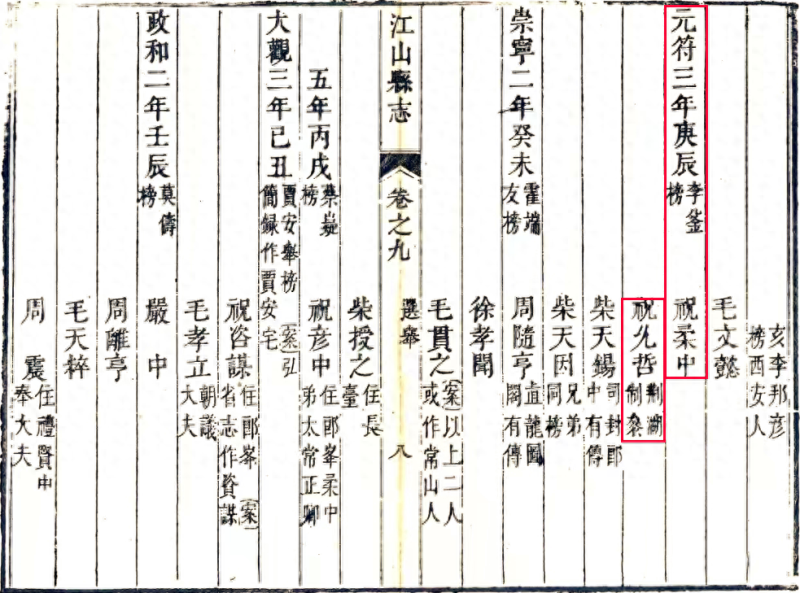 亥李邦彦
榜西安人
毛文懿
元符三年庚辰
李釜
榜
祝柔中
祝允哲
荆湖
制叅
柴天錫
司封郎
中有傳
柴天因
兄弟
同榜
崇寧二年癸未
霍端
友榜
周隨亨
直龍圖
閣有傳
徐孝聞
毛貫之
(案)以上二人
或作常山人
江山縣志
卷之九
選舉
八
柴授之
住長
臺
五年丙戌
蔡嶷
榜
祝彦中
住郎峯柔中
弟太常正卿
大觀三年己丑
賈安舉榜(案)弘
簡録作賈安宅
祝咨謀
住郎峯(案)
省志作資謀
毛孝立
朝議
大夫
政和二年壬辰
莫儔
榜
嚴中
周離亨
毛天粹
周震
住禮賢中
奉大夫